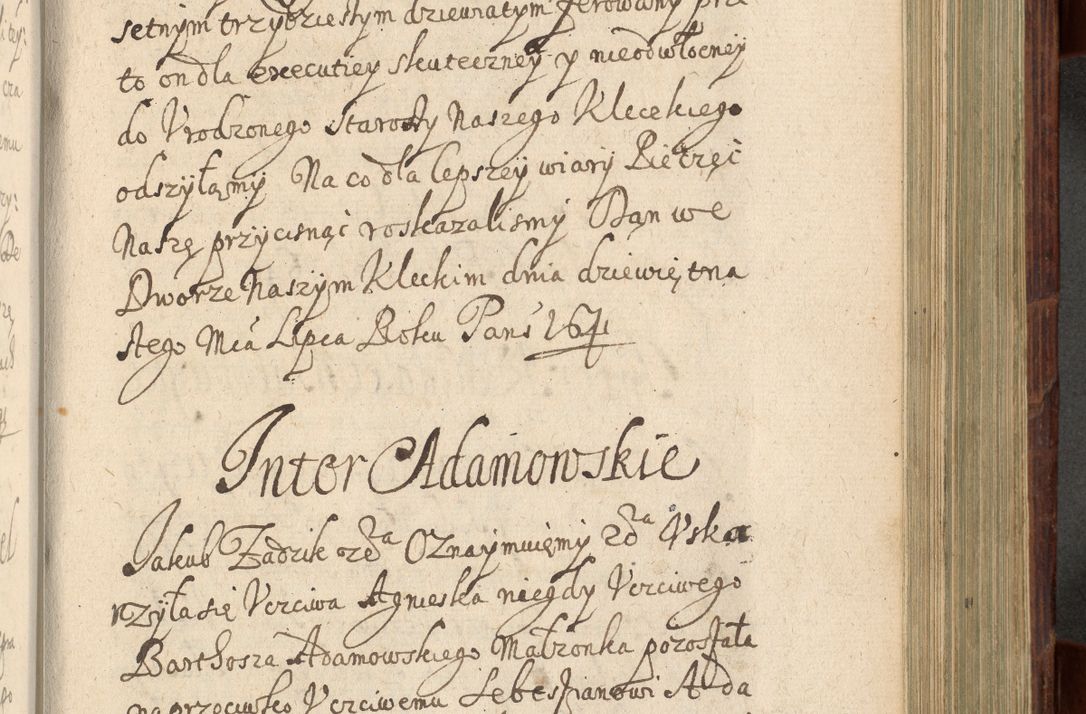 setnym trzydziestym dziewiatym ferowany prze
to on dla executiey skuteczney y nieodwłocney
do Vrodzonego Starosty Naszego Kleckiego
odszyłamy Na co dla lepszey wiary Pietzęć
Naszę przycisnąć roskazalismy Dan we
Dworze Naszym Kleckim dnia dziewiętna
stego Mca Lipca Roku Pans 1641
Inter Adamowskie
Jakub Zadzik etc Oznaymuiemy Vska
rzyła się Vczciwa Agnieska niegdy Vczciwego
Barthosza Adamowskiego Małzonka pozostała
naprzeciwko Vczciwemu Sebestianowi Ada